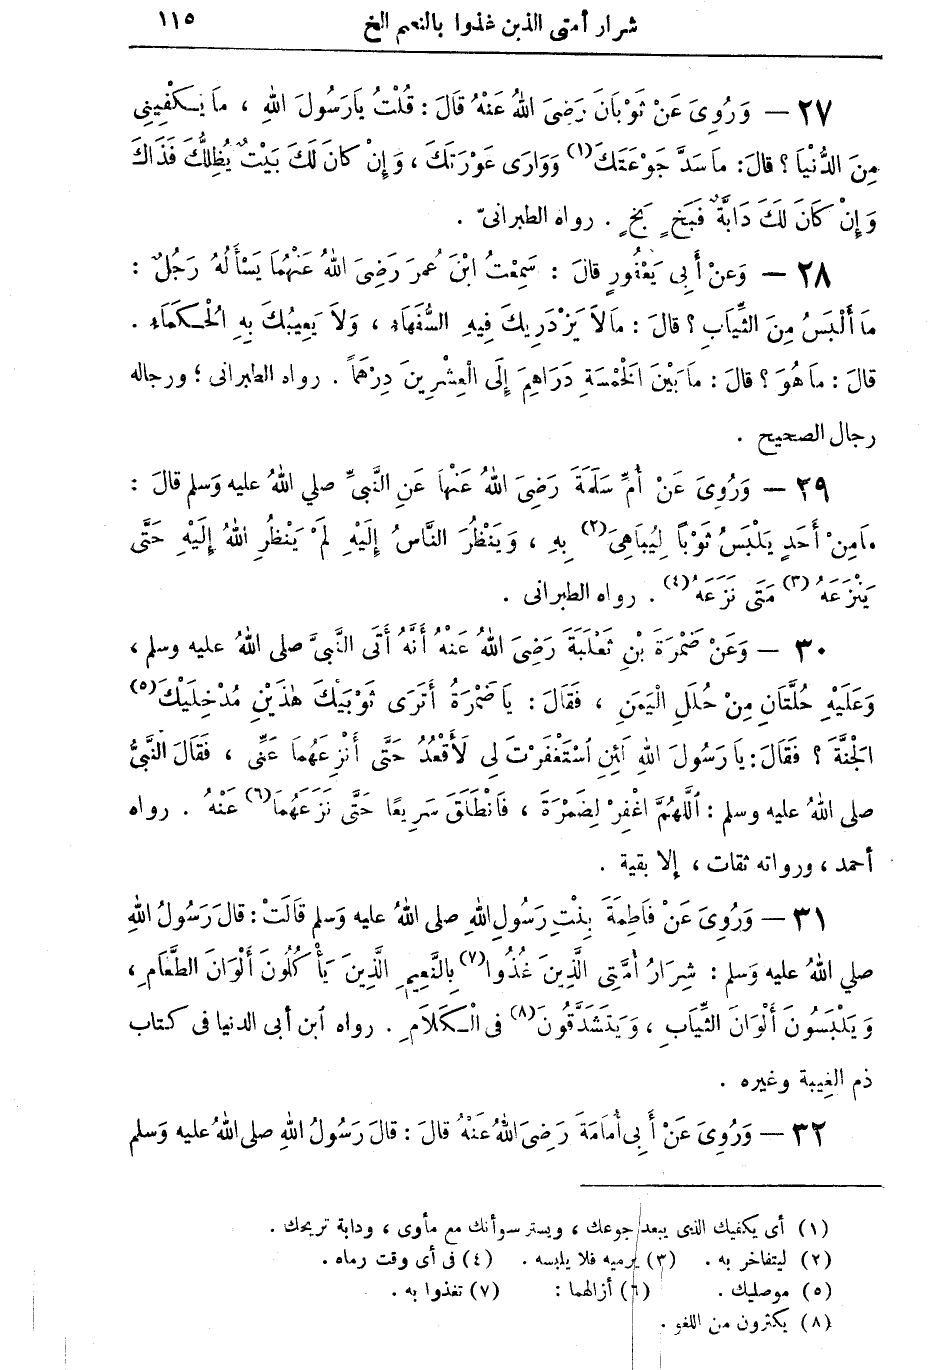 شرار أمتى الذين غذوا بالنعيم الخ ١١٥
٢٧ — وَرُوِىَ عَنْ ثَوْبَانَ رَضِىَ اللهُ عَنْهُ قَالَ : قُلْتُ يَارَسُولَ اللهِ ، مَا يَكْفِينِى
مِنَ الدُّنْيَا ؟ قالَ : مَا سَدَّ جَوْعَتَكَ(١) وَوَارَى عَوْرَتَكَ ، وَإِنْ كانَ لَكَ بَيْتٌ يُظِلُّكَ فَذَاكَ
وَإِنْ كَانَ لَكَ دَابَّةٌ فَبَخٍ بَخٍ . رواه الطبرانىّ .
٢٨ — وَعنْ أَبِى يَعْفُورٍ قالَ : سَمِعْتُ ابْنَ عُمرَ رَضِىَ اللهُ عَنْهُمَا يَسْأَلُهُ رَجُلٌ :
مَا أَلْبَسُ مِنَ الثِّيَابِ ؟ قالَ : مَا لاَ يَزْدَرِيكَ فِيهِ السُّفَهَاءُ ، وَلاَ يَعِيبُكَ بِهِ الْحُكَمَاءُ .
قالَ : مَا هُوَ ؟ قالَ : مَا بَيْنَ الْخَمْسَةِ دَرَاهِمَ إِلَى الْعِشْرِينَ دِرْهَمًا . رواه الطبرانى ؛ ورجاله
رجال الصحيح .
٢٩ — وَرُوِىَ عَنْ أُمِّ سَلَمَةَ رَضِىَ اللهُ عَنْهَا عَنِ النَّبِىِّ صلى اللهُ عليه وسلم قالَ :
مَامِنْ أَحَدٍ يَلْبَسُ ثَوْبًا لِيُبَاهِىَ(٢) بِهِ ، وَيَنْظُرَ النَّاسُ إِلَيْهِ لَمْ يَنْظُرِ اللهُ إِلَيْهِ حَتَّى
يَنْزِعَهُ(٣) مَتَى نَزَعَهُ(٤) . رواه الطبرانى .
٣٠ — وَعَنْ ضَمْرَةَ بْنِ ثَعْلَبَةَ رَضِىَ اللهُ عَنْهُ أَنَّهُ أَتَى النَّبِىَّ صلى اللهُ عليه وسلم ،
وَعَلَيْهِ حُلَّتَانِ مِنْ حُلَلِ الْيَمَنِ ، فَقَالَ : يَا ضَمْرَةُ أَتَرَى ثَوْبَيْكَ هٰذَيْنِ مُدْخِلَيْكَ(٥)
الْجَنَّةَ ؟ فَقَالَ : يَا رَسُولَ اللهِ لَئِنِ اسْتَغْفَرْتَ لِى لَأَقْعُدُ حَتَّى أَنْزِعَهُمَا عَنِّى ، فَقَالَ النَّبِىُّ
صلى اللهُ عليه وسلم : اَللَّهُمَّ اغْفِرْ لِضَمْرَةَ ، فَانْطَلَقَ سَرِيعًا حَتَّى نَزَعَهُمَا(٦) عَنْهُ . رواه
أحمد ، ورواته ثقات ، إلا بقية .
٣١ — وَرُوِىَ عَنْ فَاطِمَةَ بِنْتِ رَسُولِ اللهِ صلى اللهُ عليه وَسلم قالَتْ : قالَ رَسُولُ اللهِ
صلي اللهُ عليه وَسلم : شِرَارُ أُمَّتِى الَّذِينَ غُذُوا(٧) بِالنَّعِيمِ الَّذِينَ يَأْكُلُونَ أَلْوَانَ الطَّعَامِ ،
وَيَلْبَسُونَ أَلْوَانَ الثِّيَابِ ، وَيَتَشَدَّقُونَ(٨) فى الْكَلاَمِ . رواه ابن أبى الدنيا فى كتاب
ذم الغيبة وغيره .
٣٢ — وَرُوِىَ عَنْ أَبِى أُمَامَةَ رَضِىَ اللهُ عَنْهُ قالَ : قالَ رَسُولُ اللهِ صلى اللهُ عليه وَسلم
(١) أى يكفيك الذى يبعد جوعك ، ويستر سوأتك مع مأوى ، ودابة تريحك .
(٢) ليتفاخر به . (٣) يرميه فلا يلبسه . (٤) فى أى وقت رماه .
(٥) موصليك . (٦) أزالهما : (٧) تغذوا به .
(٨) يكثرون من اللغو .